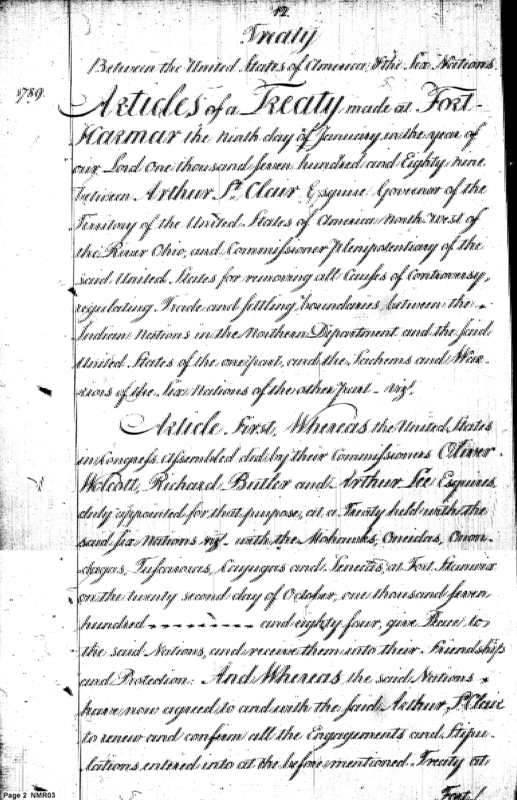 12.
Treaty
Between the United States of America, & the Six Nations
1789. Articles of a Treaty made at Fort-
Harmar the ninth day of January in the year of
our Lord One thousand seven hundred and Eighty nine
between Arthur St. Clair Esquire Governor of the
Territory of the United States of America North-west of
the River Ohio, and Commissioner plenipotentiary of the
said United States for removing all Causes of Controversy,
regulating Trade and settling boundaries between the
Indian Nations in the Northern Department and the said
United States of the one part, and the Sachems and War-
riors of the Six Nations of the other part- vizt.
Article First, Whereas the United States
in Congress Assembled did, by their Commissioners Oliver
Wolcott, Richard Butler and Arthur Lee Esquires
duly appointed for that purpose, at a Treaty held with the
said six Nations vizt. with the Mohawks, Oneidas, Onon-
dagas, Tuscaroras, Cayugas and Senecas, at Fort Stanwix
on the twenty second day of October, one thousand seven
hundred --------- and eighty four, give Peace to
the said Nations, and receive them into their Friendship
and Protection: And Whereas the said Nations
have now agreed to and with the said Arthur St. Clair
to renew and confirm all the Engagements and Stipu-
lations entered into at the before mentioned Treaty at
Fort
Page 2 NMR03